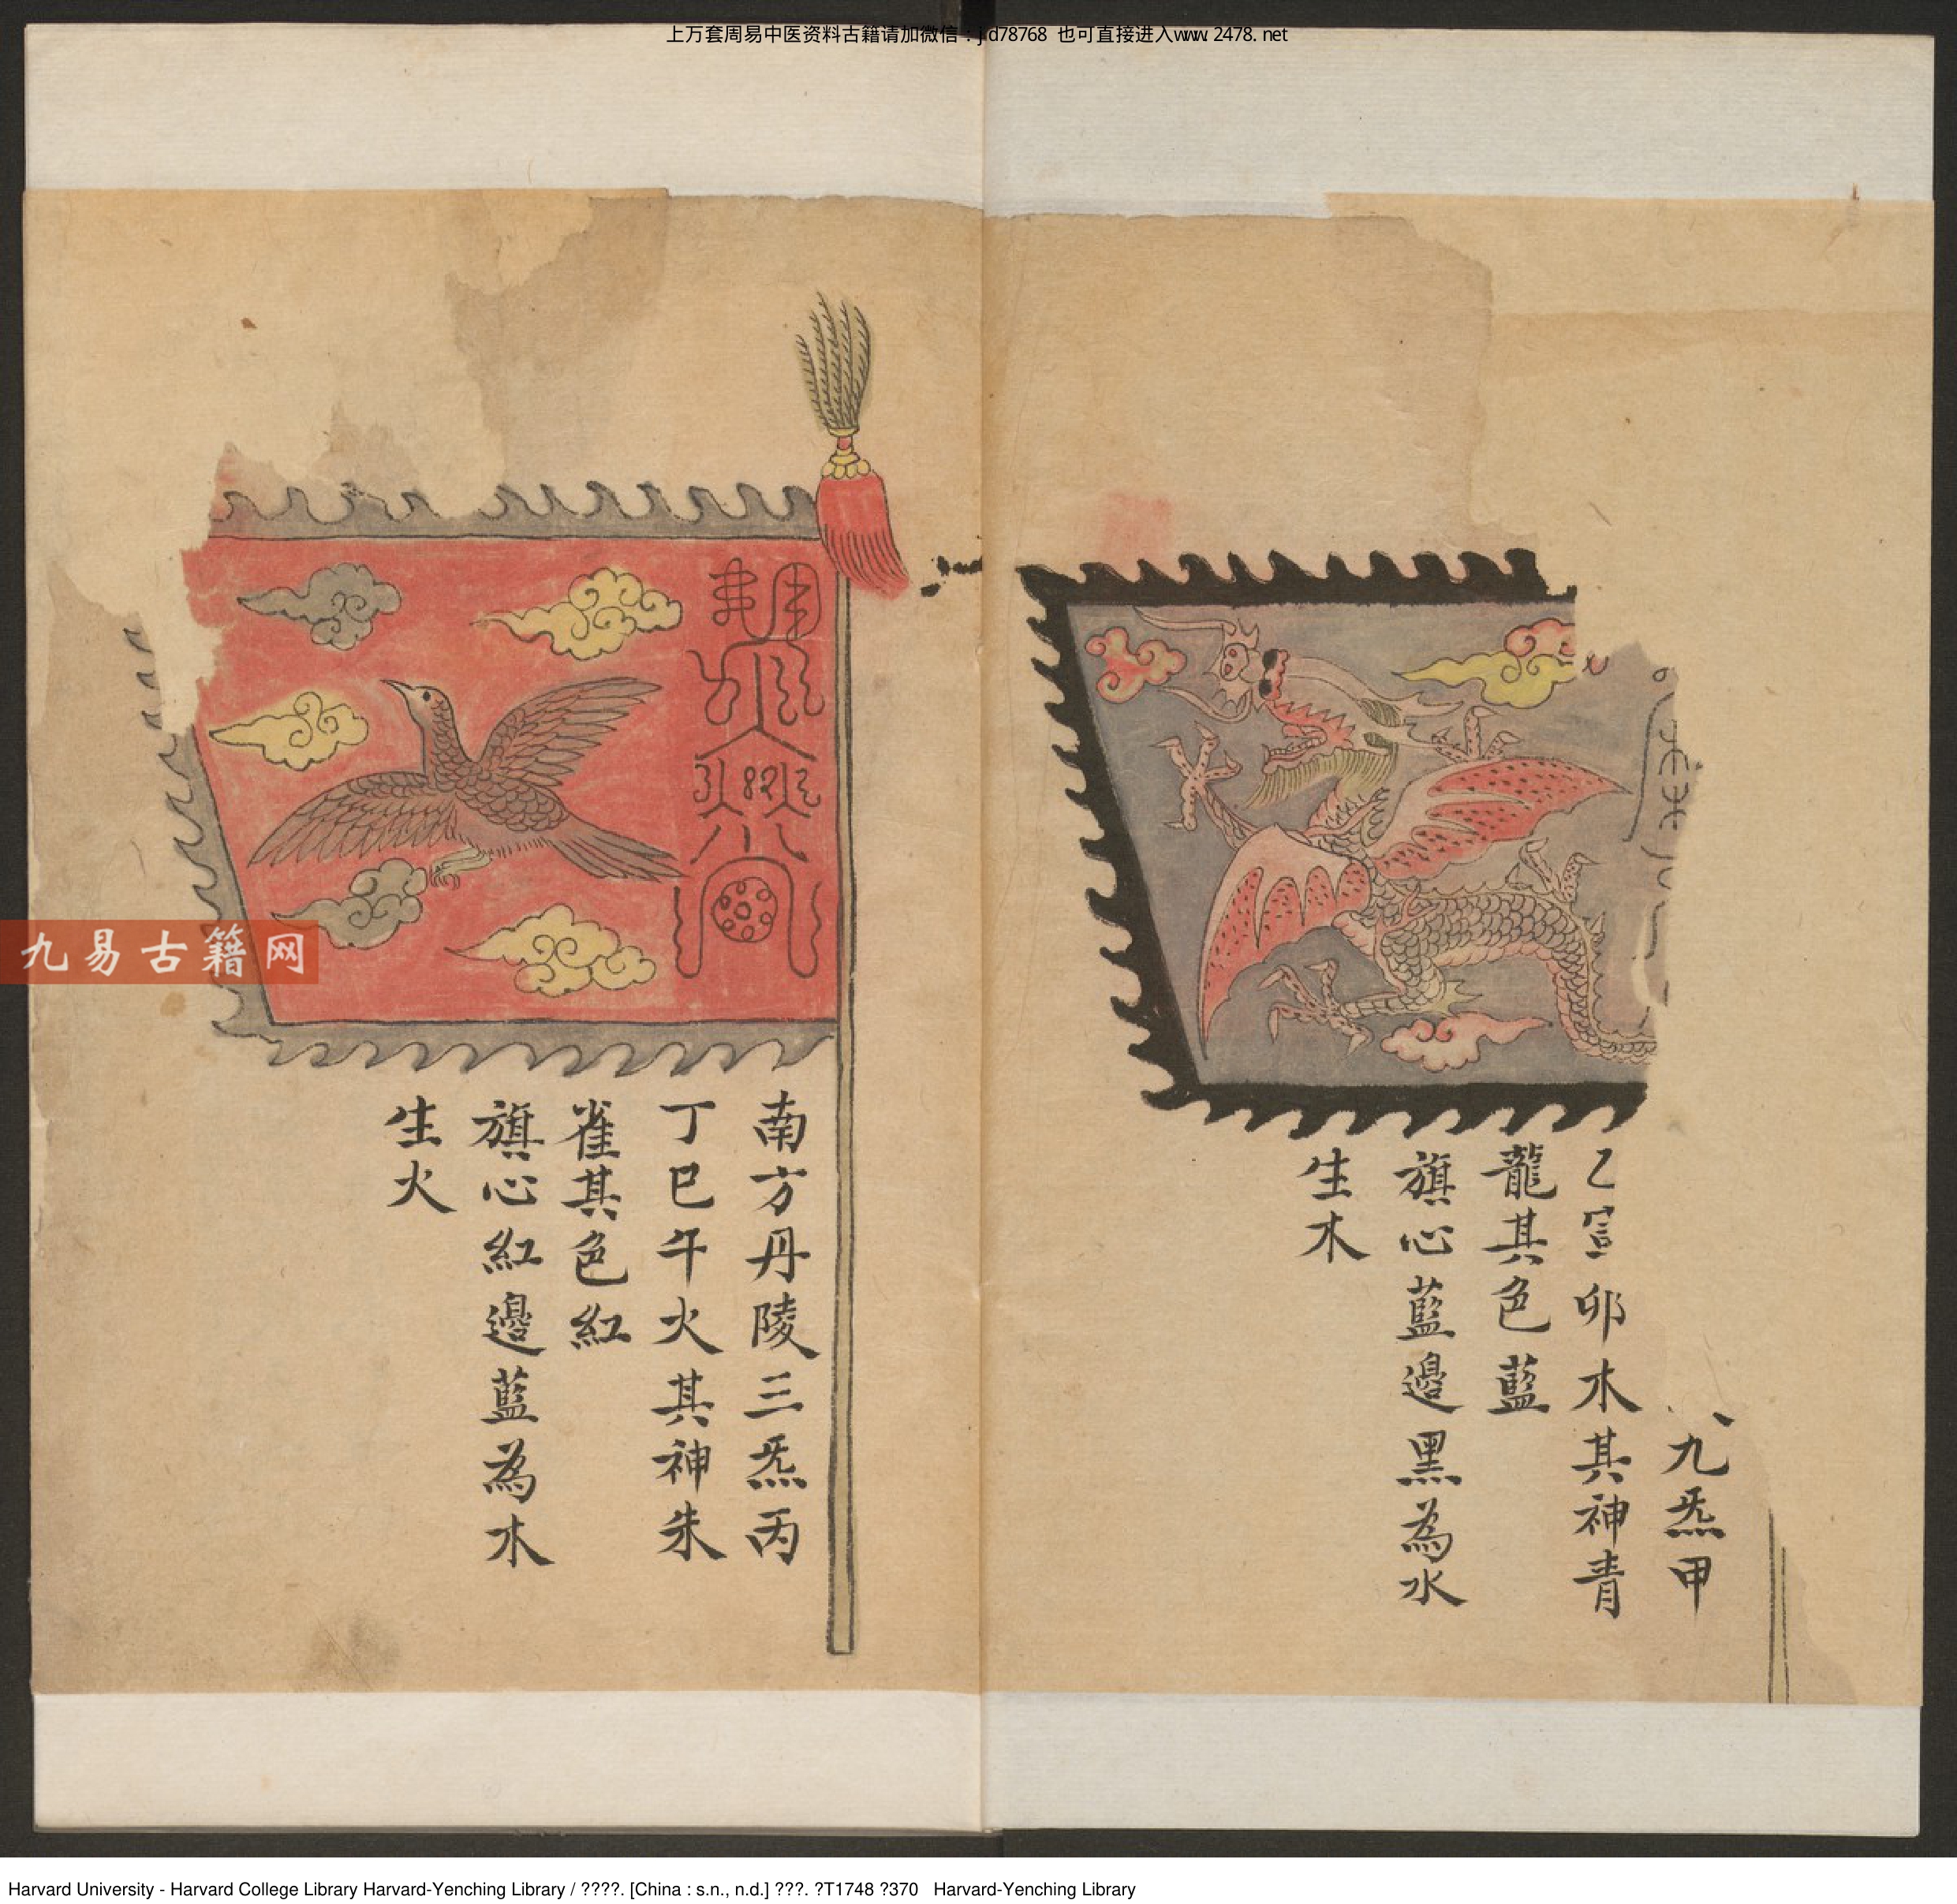 上万套周易中医资料古籍请加微信：jd78768 也可直接进入www.2478.net
九炁甲
乙寅卯木其神青
龍其色藍
旗心藍邊黑為水
生木
南方丹陵三炁丙
丁巳午火其神朱
雀其色紅
旗心紅邊藍為木
生火
九易古籍网
Harvard University - Harvard College Library Harvard-Yenching Library / ????. [China : s.n., n.d.] ???. ?T1748 ?370 Harvard-Yenching Library